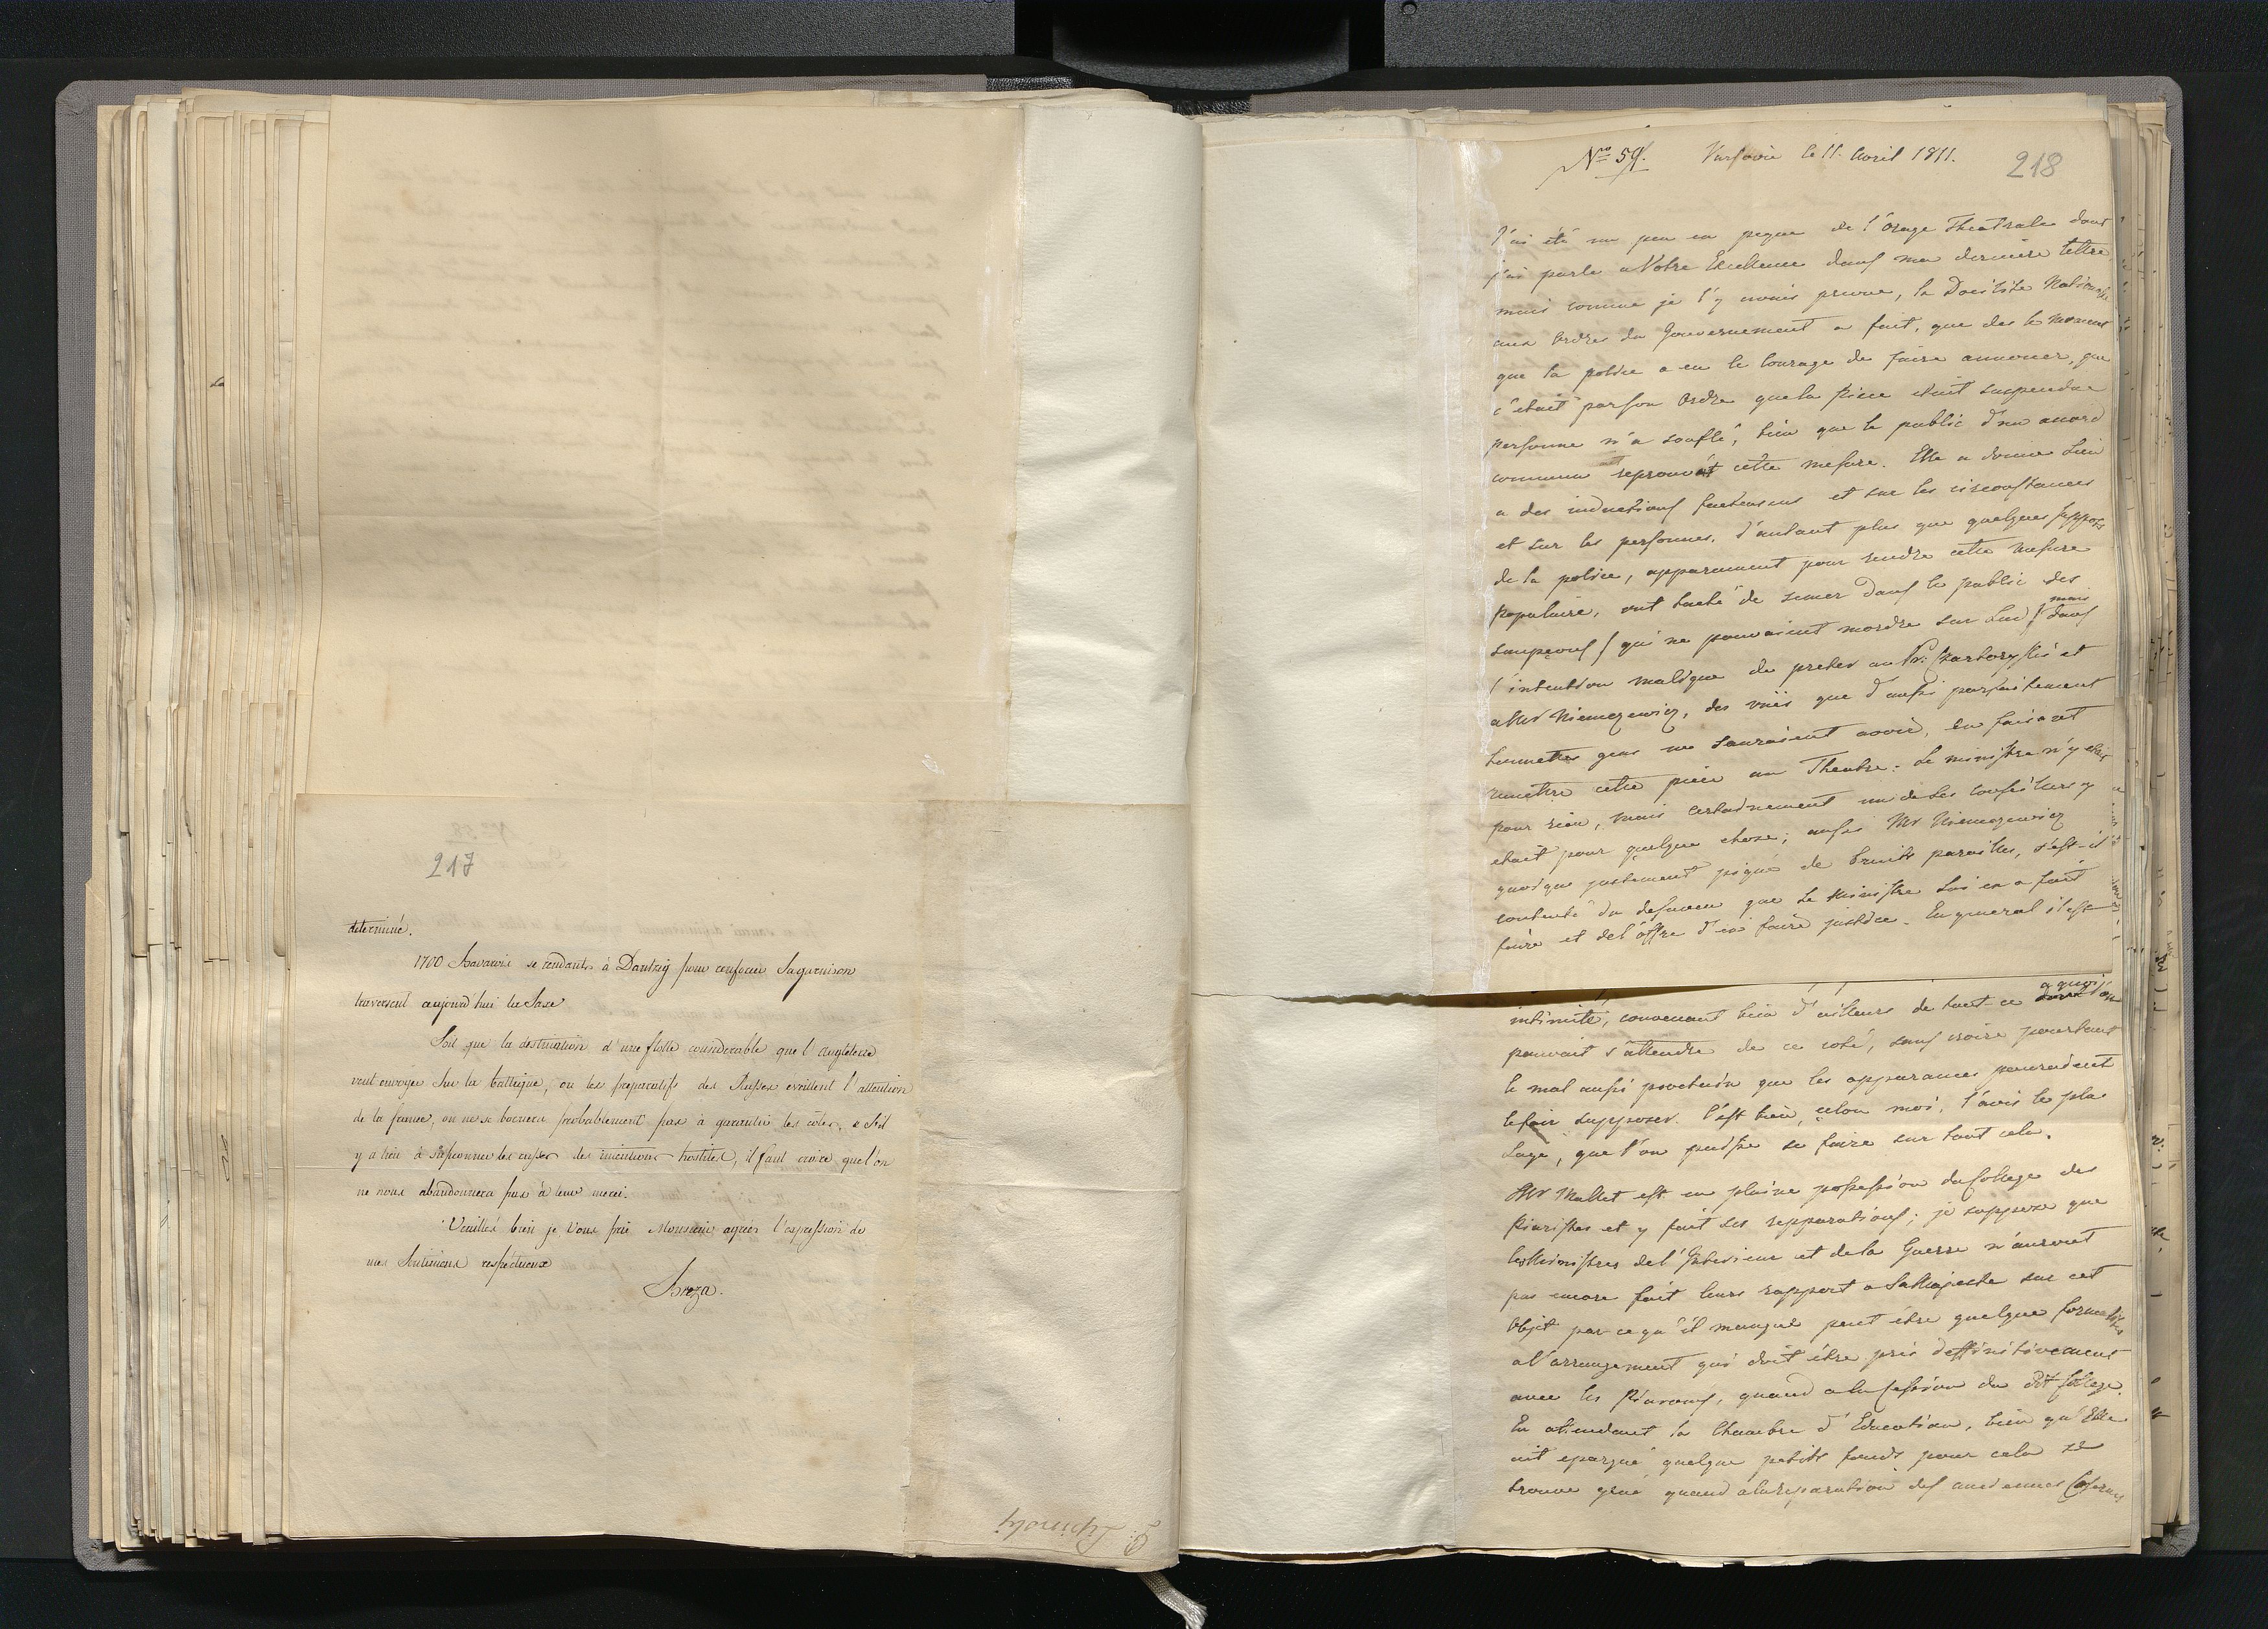 217
determiné.
1700 Bavarois se rendants à Dantzig pour renforcer la garnison
traversent aujourd'hui la Saxe
Soit que la destination d'une flotte considerable que l'Angleterre
veut envoyer sur la baltique, ou les preparatifs des Russes eveillent l'attention
de la france, on ne se bornera probablement pas à garantir les côtes, & s'il
y a lieu à supconner les russes des intentions hostiles, il faut croire que l'on
ne nous abandonnera pas à leur merci.
Veuillés bien je Vous prie Monsieur agréer l'expression de
mes Sentimens respectueux
Breza.
Lipinski
No 59. Varsovie le 11. Avril 1811.
218
J'ai été un peu en peine de l'orage Theatrale dont
j'ai parlé a Votre Excellence dans ma derniere lettre
mais comme je l'y avais prevue, la Docilité Nationale
aux Ordres du Gouvernement a fait, que des le moment
que la police a eu le Courage de faire annoncer, que
c'était par son Ordre que la piece etait suspendue
personne n'a souflé, bien que le public d'un accord
commun reprouvat cette mesure. Elle a donné Lieu
a des inductions facheuses et sur les circonstances
et sur les personnes, d'autant plus que quelques suppots
de la police, apparemment pour rendre cette mesure
populaire, ont taché de semer dans le public des
soupçons / qui ne pouvaient mordre sur Lui / mais dans
l'intention maligne de preter au Pr: Czartoryski et
a Mr Niemcewicz, des vües que d'aussi parfaitement
honnettes gens ne sauraient avoir, en faisant
remettre cette piece au Theatre: Le ministre n'y etait
pour rien, mais certainement un de ses Conseillers y
etait pour quelque chose; aussi Mr Niemcewicz
quoique justement piqué de bruits pareilles, s'est-il
contenté du desaveu que Le Ministre Lui en a fait
faire et de l'offre d'en faire justice. En general il est
intimité, convenant bien d'ailleurs de tout ce a quoi l'on
pouvait s'attendre de ce coté, sans croire pourtant
le mal aussi prochain que les apparances pourraient
le faire supposer. C'est bien, selon moi, l'avis le plus
Sage, que l'on puisse se faire sur tout cela.
Mr Mallet est en plaine possession du College des
Piaristes et y fait ses repparations; je suppose que
les Ministres de l'Interieur et de la Guerre n'auront
pas encore fait leurs rapport a Sa Majesté sur cet
objet par ce qu'il manque peut etre quelque formalités
a l'arrangement qui doit être pris deffinitivement
avec les Piarons, quand a la Cession du dit College.
En attendant la Chambre d'Education, bien qu'Elle
ait epargné quelque petits fonds pour cela se
trouve gené quand a la reparation des anciennes Casernes